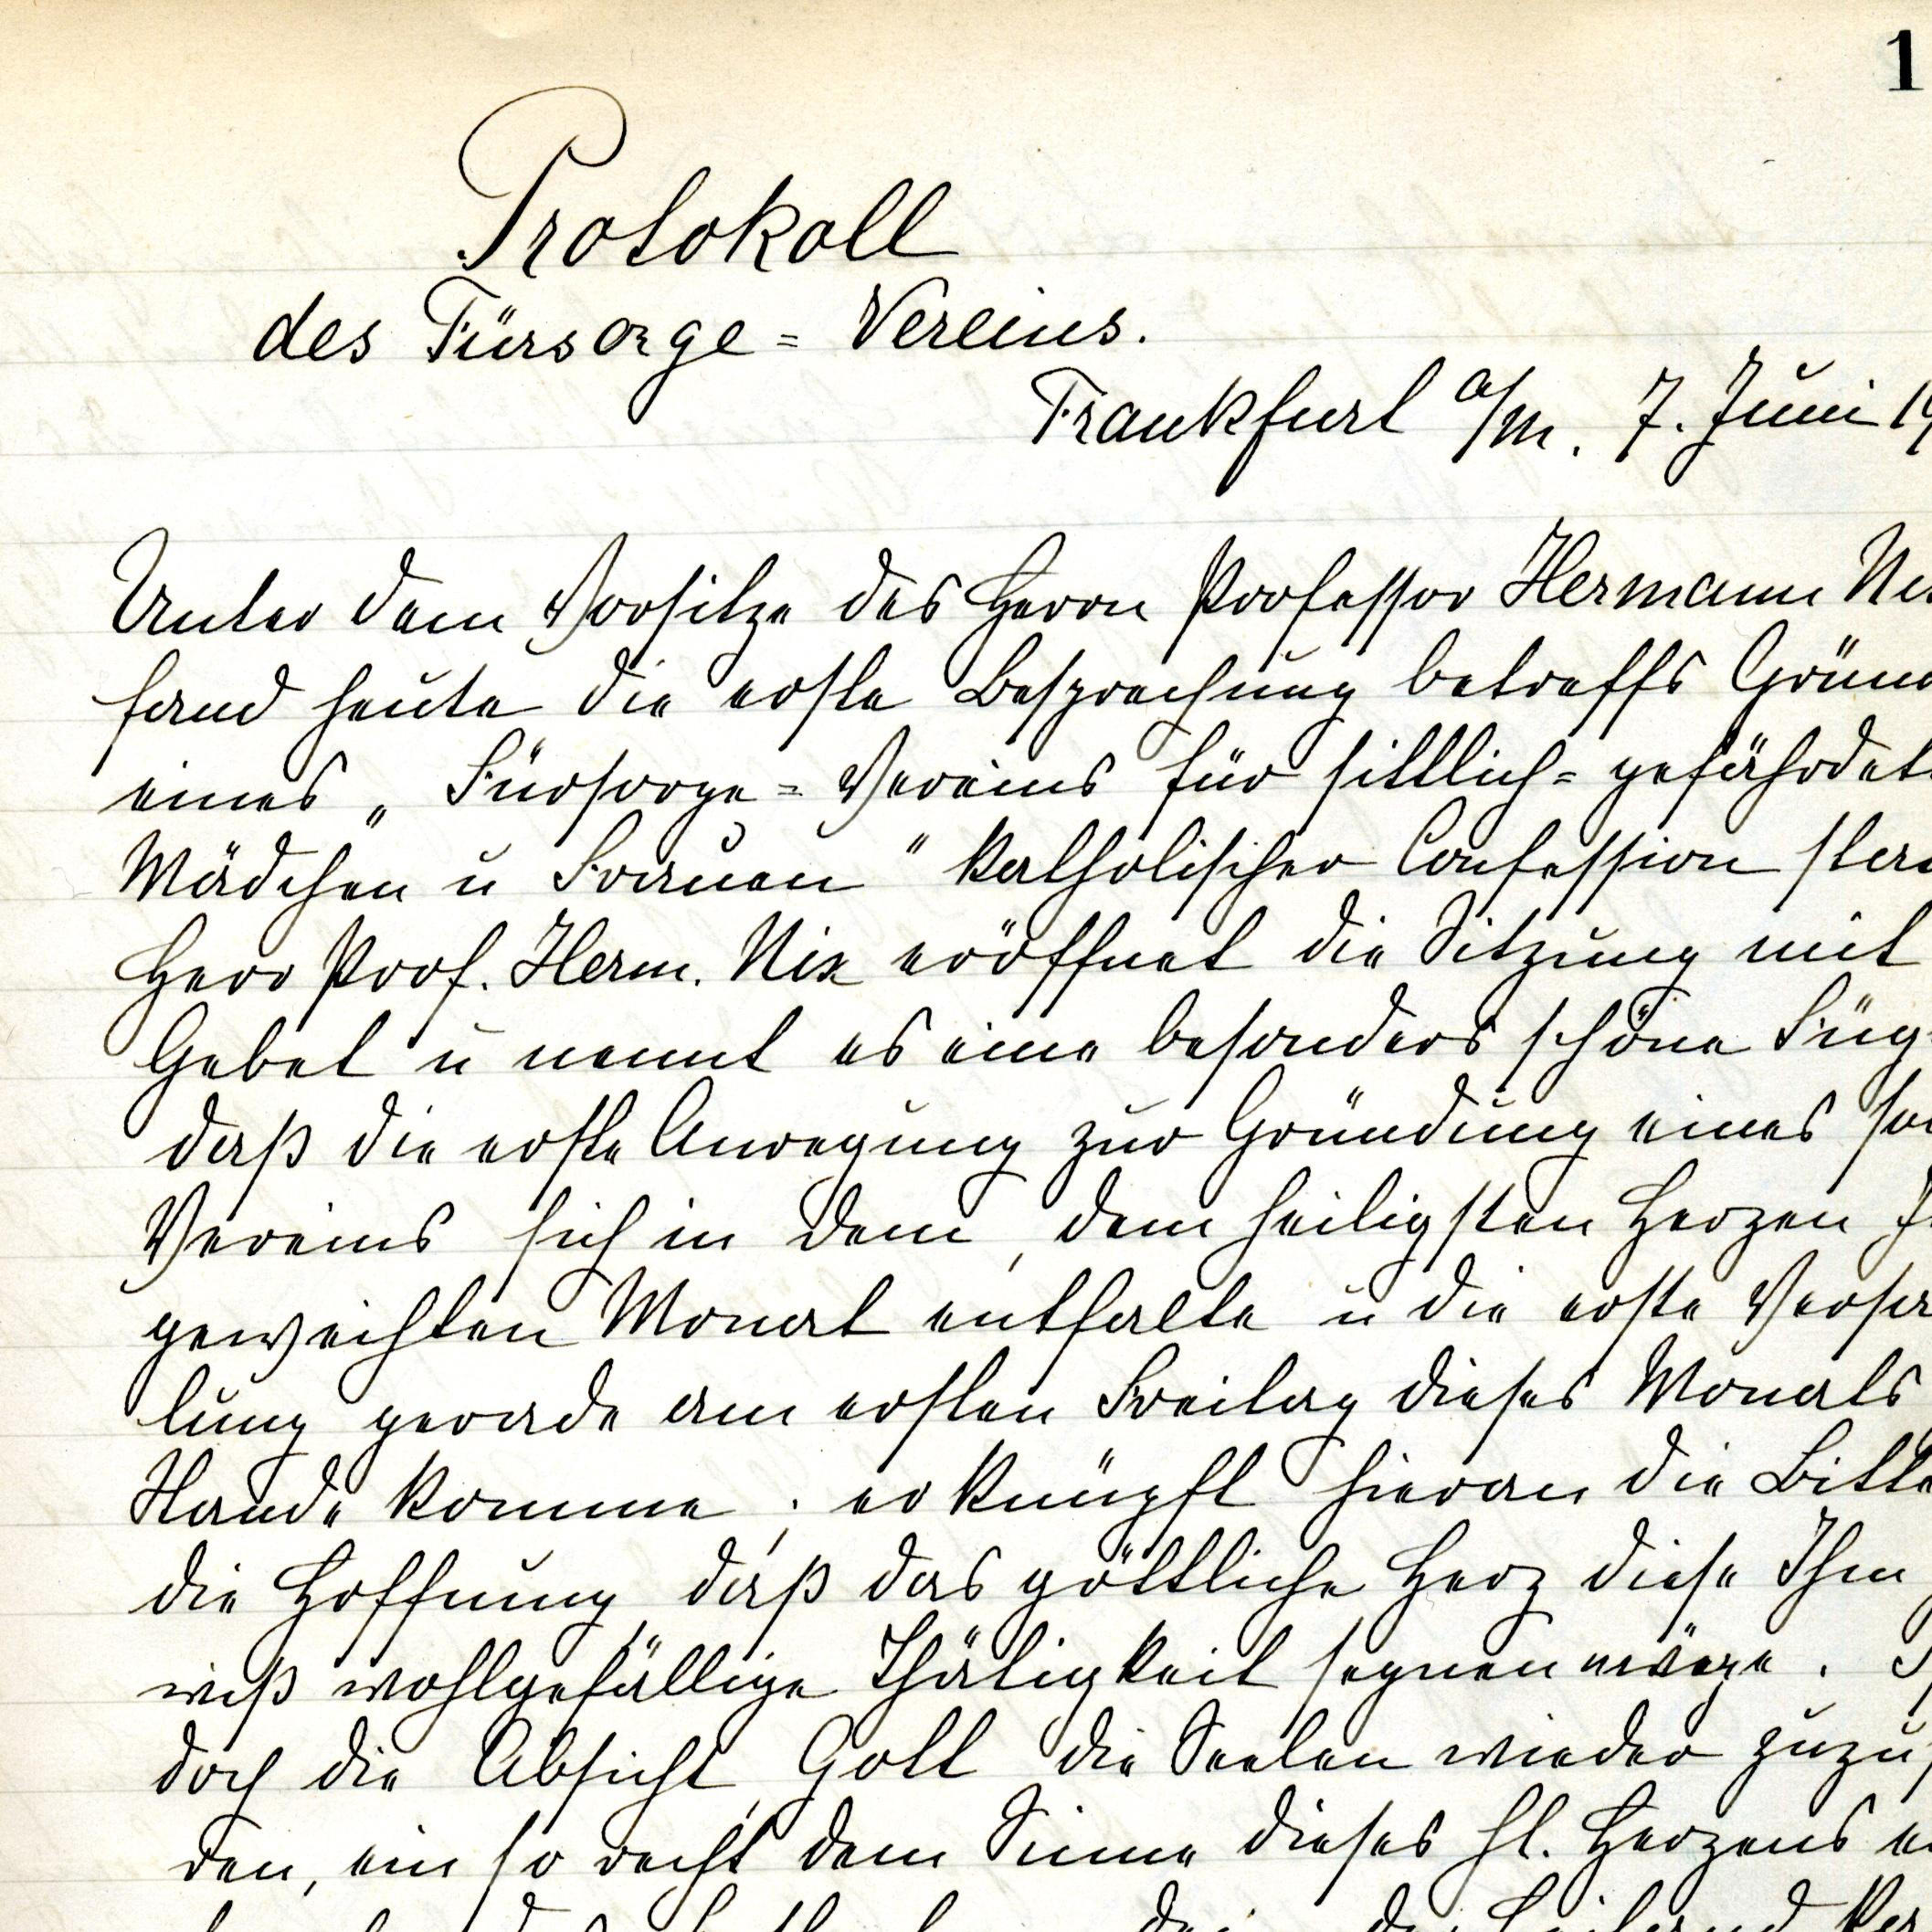 1
Protokoll
des Fürsorge= Vereins.
Frankfurt a/M. 7. Juni 19
Unter dem Vorsitze des Herrn Professor Hermann Ni
fand heute die erste Besprechung betreffs Gründ
eines „Fürsorge= Vereins für sittlich= gefährdete
Mädchen u Frauen" katholischer Confession stat
Herr Prof. Herm. Nix eröffnet die Sitzung mit
Gebet u nennt es eine besonders schöne Füg
daß die erste Anregung zur Gründung eines so
Vereins sich in dem, dem heiligsten Herzen J
geweihten Monat entfalte u die erste Versa
lung gerade am ersten Freitag dieses Monats
Stande komme; er knüpft hieran die Bitte
die Hoffnung, daß das göttliche Herz diese Ihm
wiß wohlgefällige Thätigkeit segnen möge.
doch die Absicht, Gott die Seelen wieder zuzu
den, ein so recht dem Sinne dieses hl. Herzens e